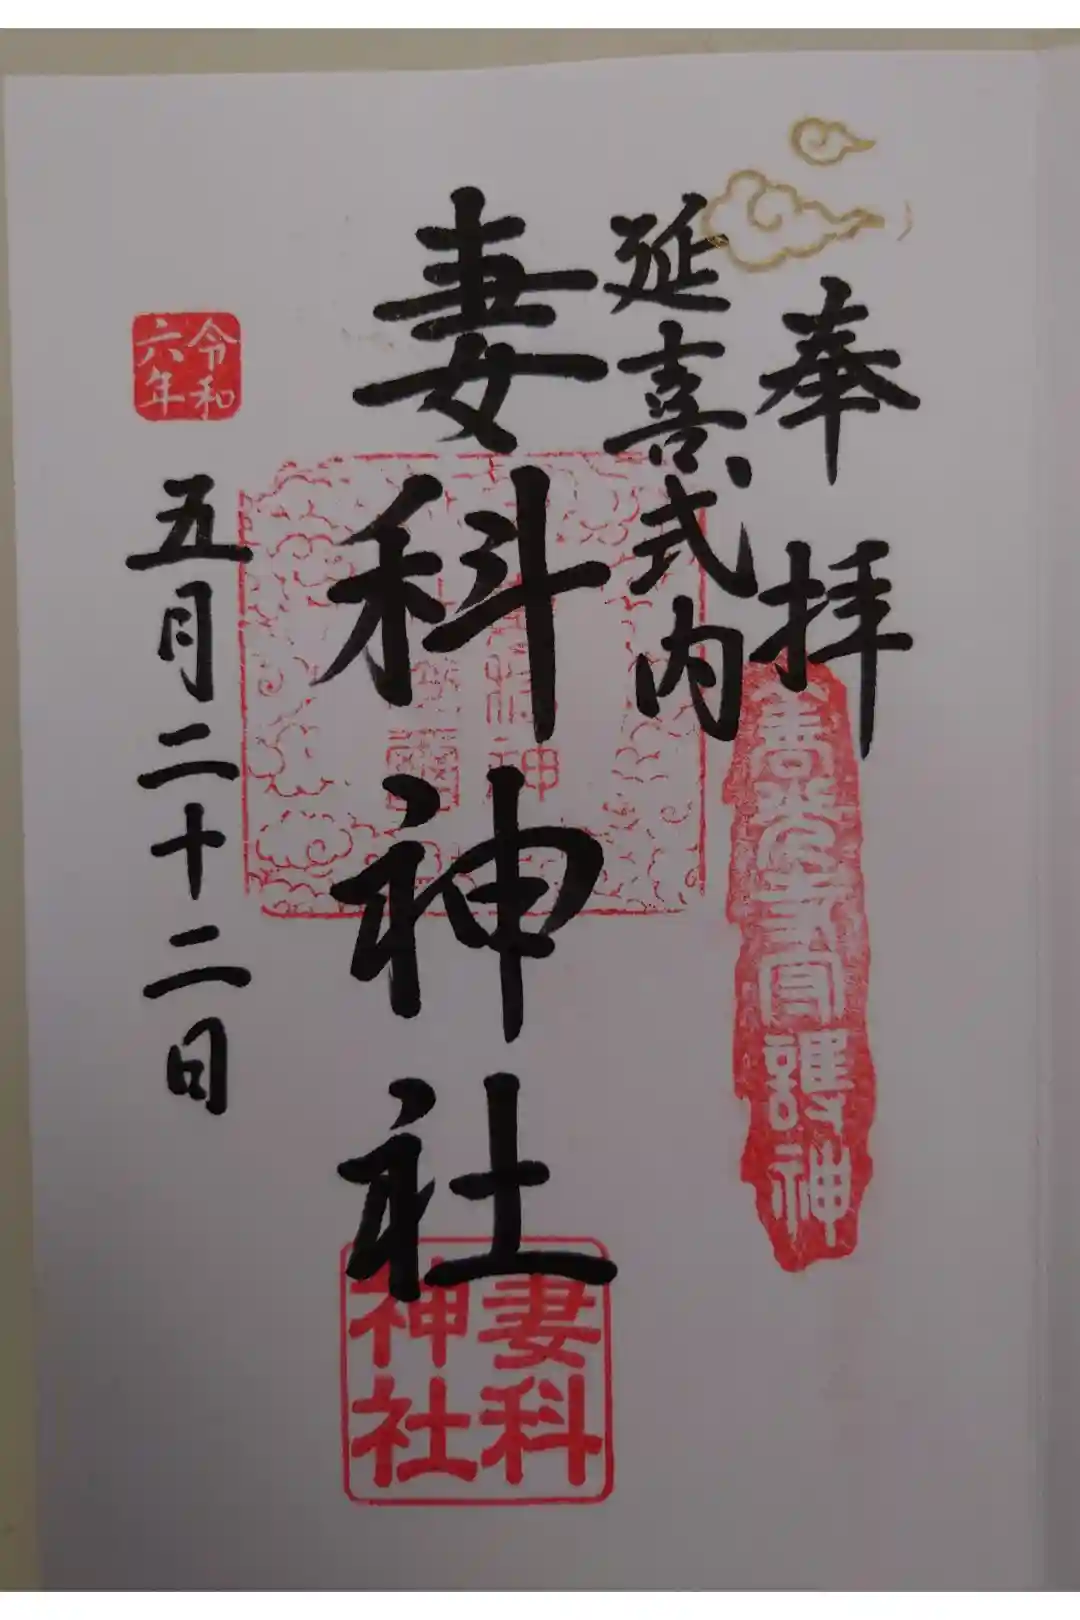 奉拝
善光寺守護神
延喜式内
妻科神社
妻科
神社
令和
六年
五月二十二日